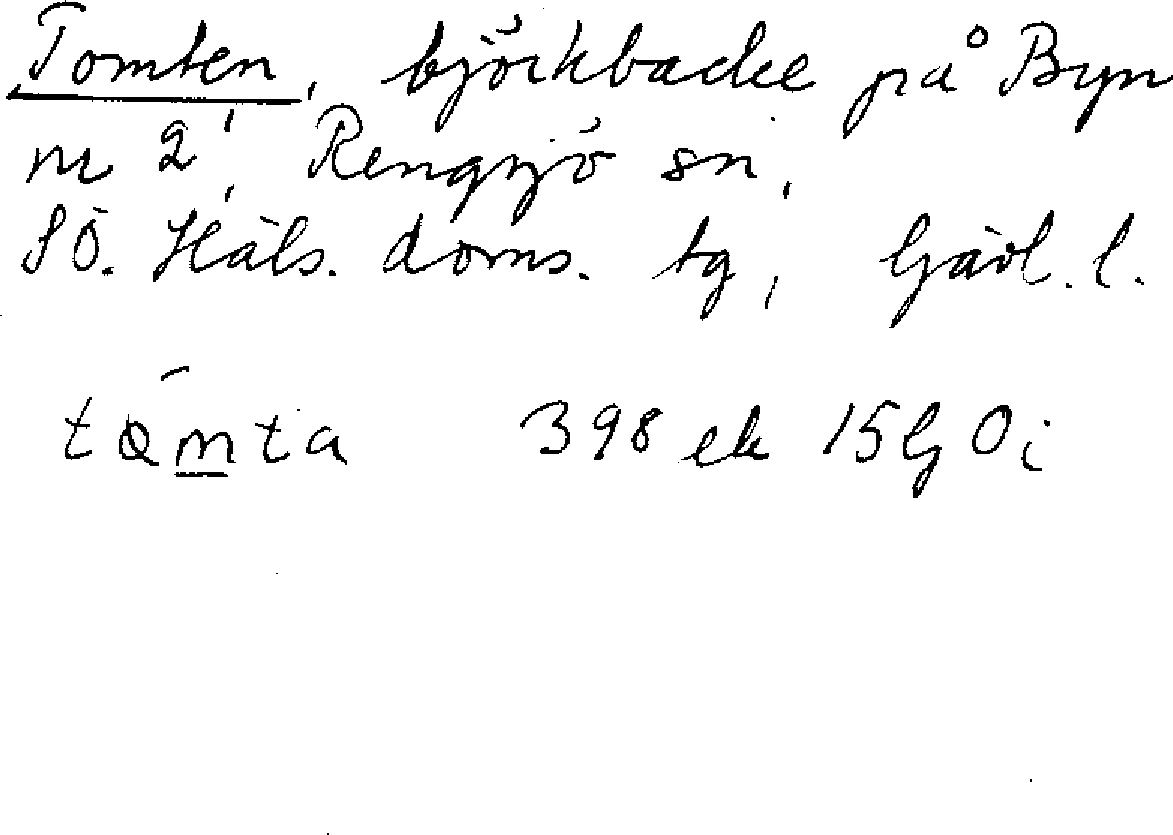 Tomten, björkbacke på Byn
nr 2, Rengsjö sn,
SÖ. Häls. doms. tg, Gävl. l.
tomta 398 ek 15G Oi